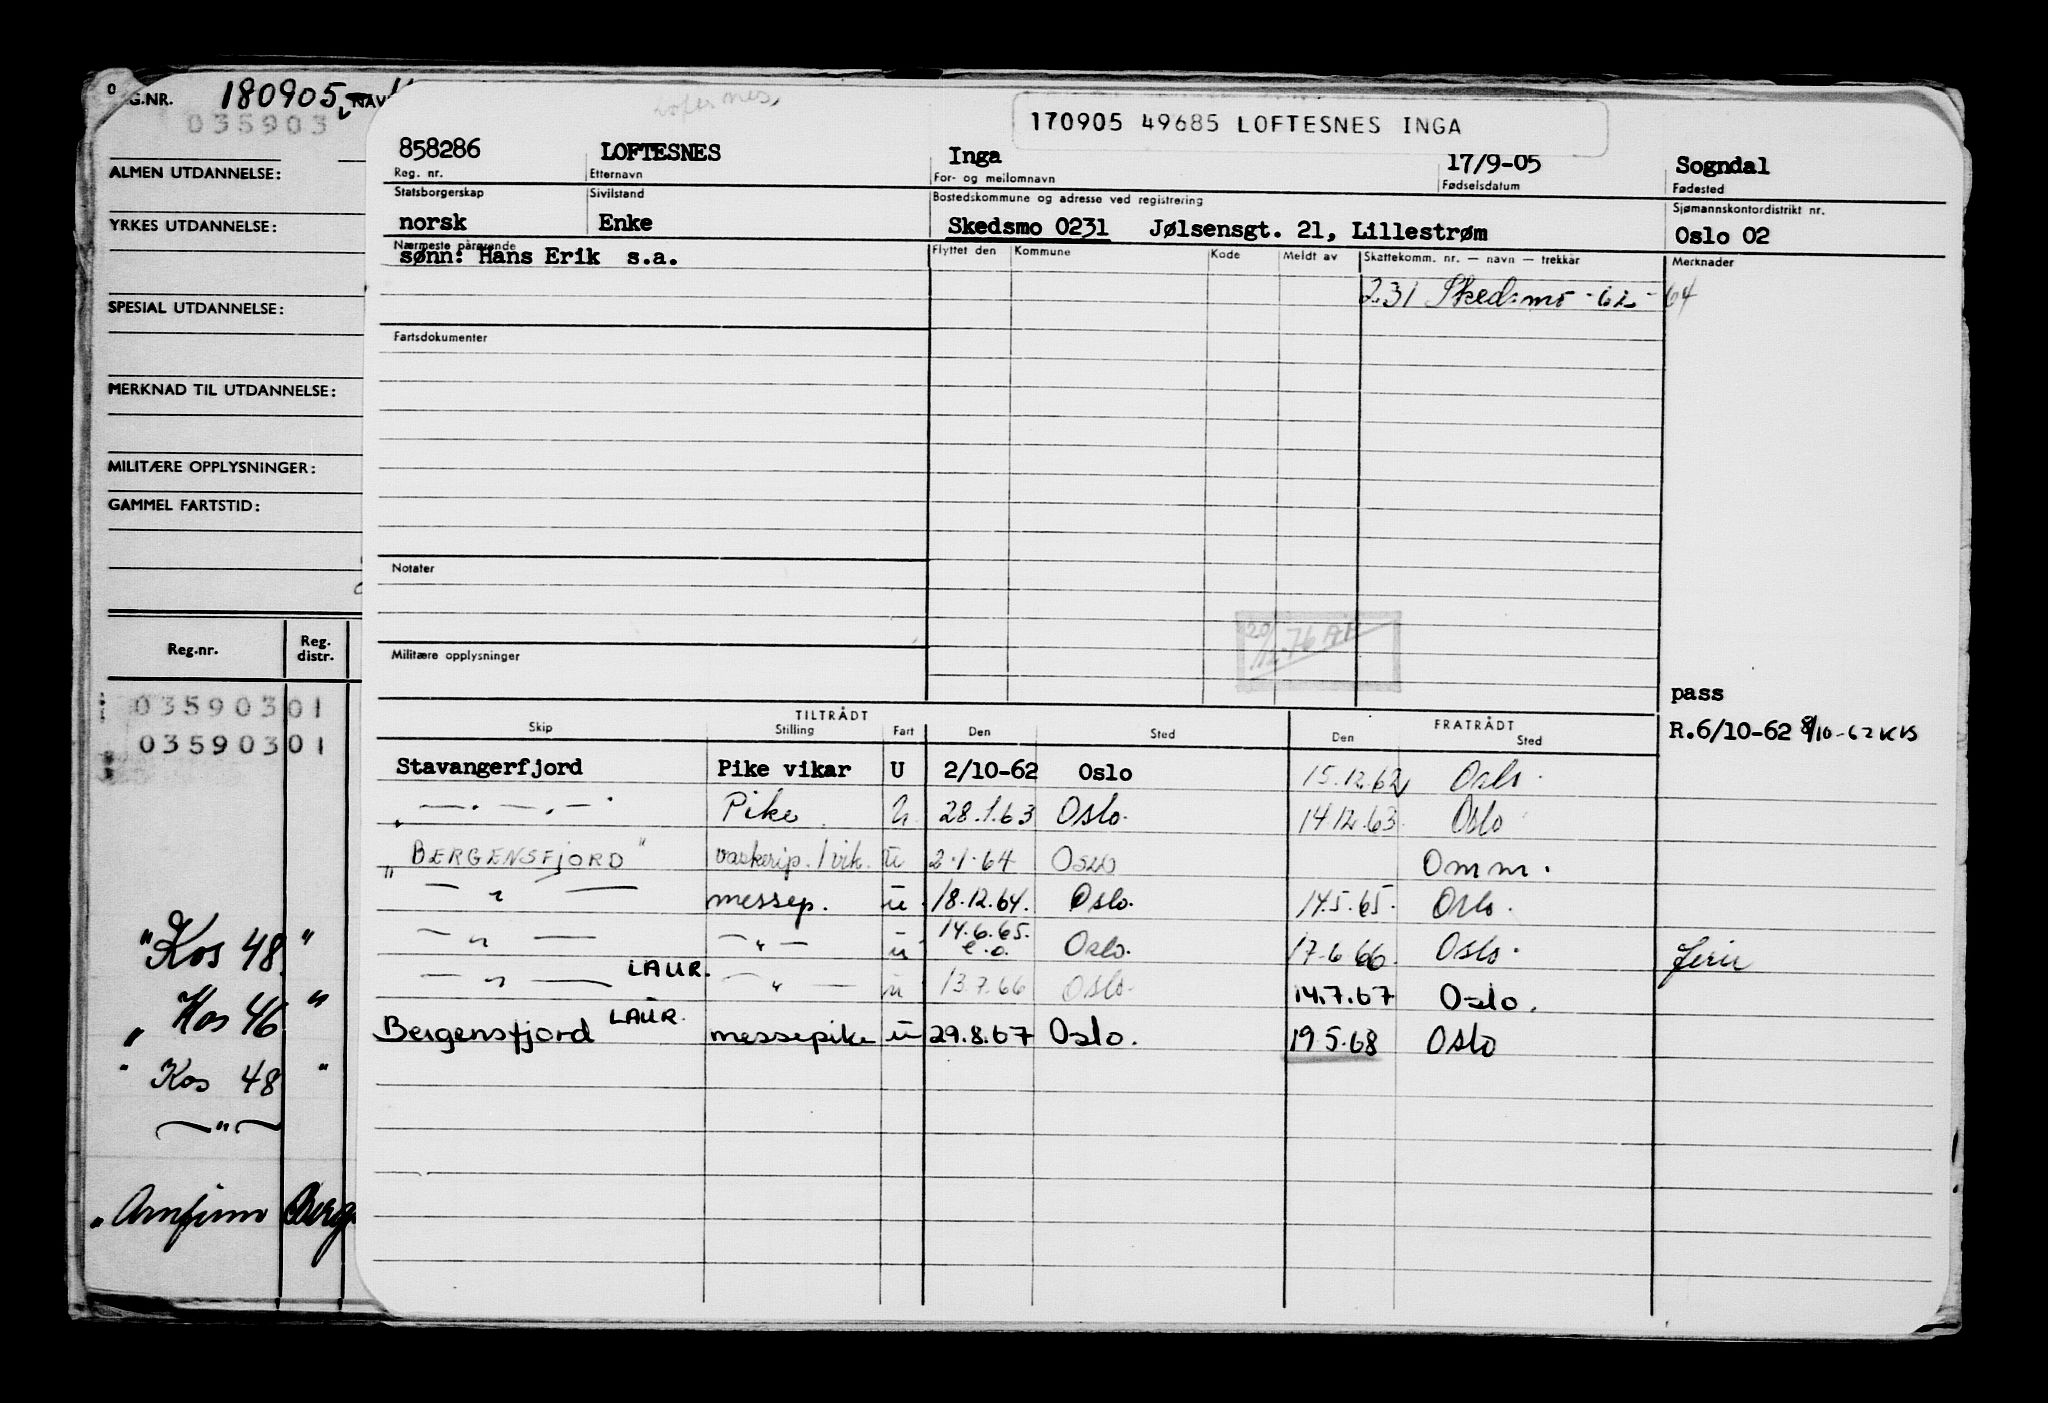 G.NR. 180905 NAV
035903
ALMEN UTDANNELSE:
YRKES UTDANNELSE:
SPESIAL UTDANNELSE:
MERKNAD TIL UTDANNELSE:
MILITÆRE OPPLYSNINGER:
GAMMEL FARTSTID:
Reg.nr. Reg. distr.
03590301
03590301
"Kos 48"
"Kos 46"
"Kos 48"
—"—
"Arnfinn Berg
170905 49685 LOFTESNES INGA
858286 LOFTESNES Inga 17/9-05 Sogndal
Reg. nr. Etternavn For- og mellomnavn Fødselsdatum Fødested
Statsborgerskap Sivilstand Bostedskommune og adresse ved registrering Sjømannskontordistrikt nr.
norsk Enke Skedsmo 0231 Jølsensgt. 21, Lillestrøm Oslo 02
Nærmeste pårørende Flyttet den Kommune Kode Meldt av Skattekomm. nr. — navn — trekkår Merknader
sønn: Hans Erik s.a.
231 Skedsmo -62-64
Fartsdokumenter
Notater
Militære opplysninger
pass
R.6/10-62 8/10-62 KB
TILTRÅDT FRATRÅDT
Skip Stilling Fart Den Sted Den Sted
Stavangerfjord Pike vikar U 2/10-62 Oslo 15.12.62 Oslo.
„—.—.—. Pike U 28.1.63 Oslo. 14.12.63. Oslo
„BERGENSFJORD" vaskerip./vik. U 2.1.64 Oslo Omm.
— " — messep. U 18.12.64. Oslo. 14.5.65. Oslo.
— " — — " — U 14.6.65. e.o. Oslo. 17.6.66. Oslo. ferie
— " — LAUR. — " — U 13.7.66 Oslo. 14.7.67 Oslo.
Bergensfjord LAUR. messepike U 29.8.67 Oslo. 19.5.68 Oslo